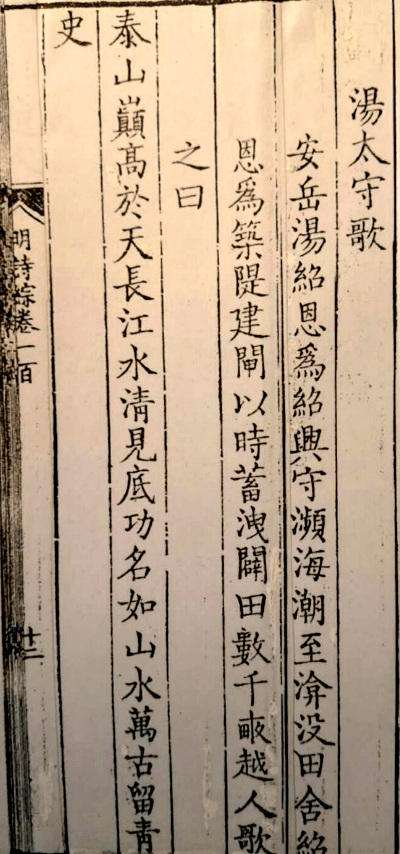 湯太守歌
安岳湯紹恩爲紹興守瀕海潮至渰没田舍紹
恩爲築隄建閘以時蓄洩闢田數千畝越人歌
之曰
泰山巔高於天長江水清見底功名如山水萬古留青
史
明詩綜卷一百
十二